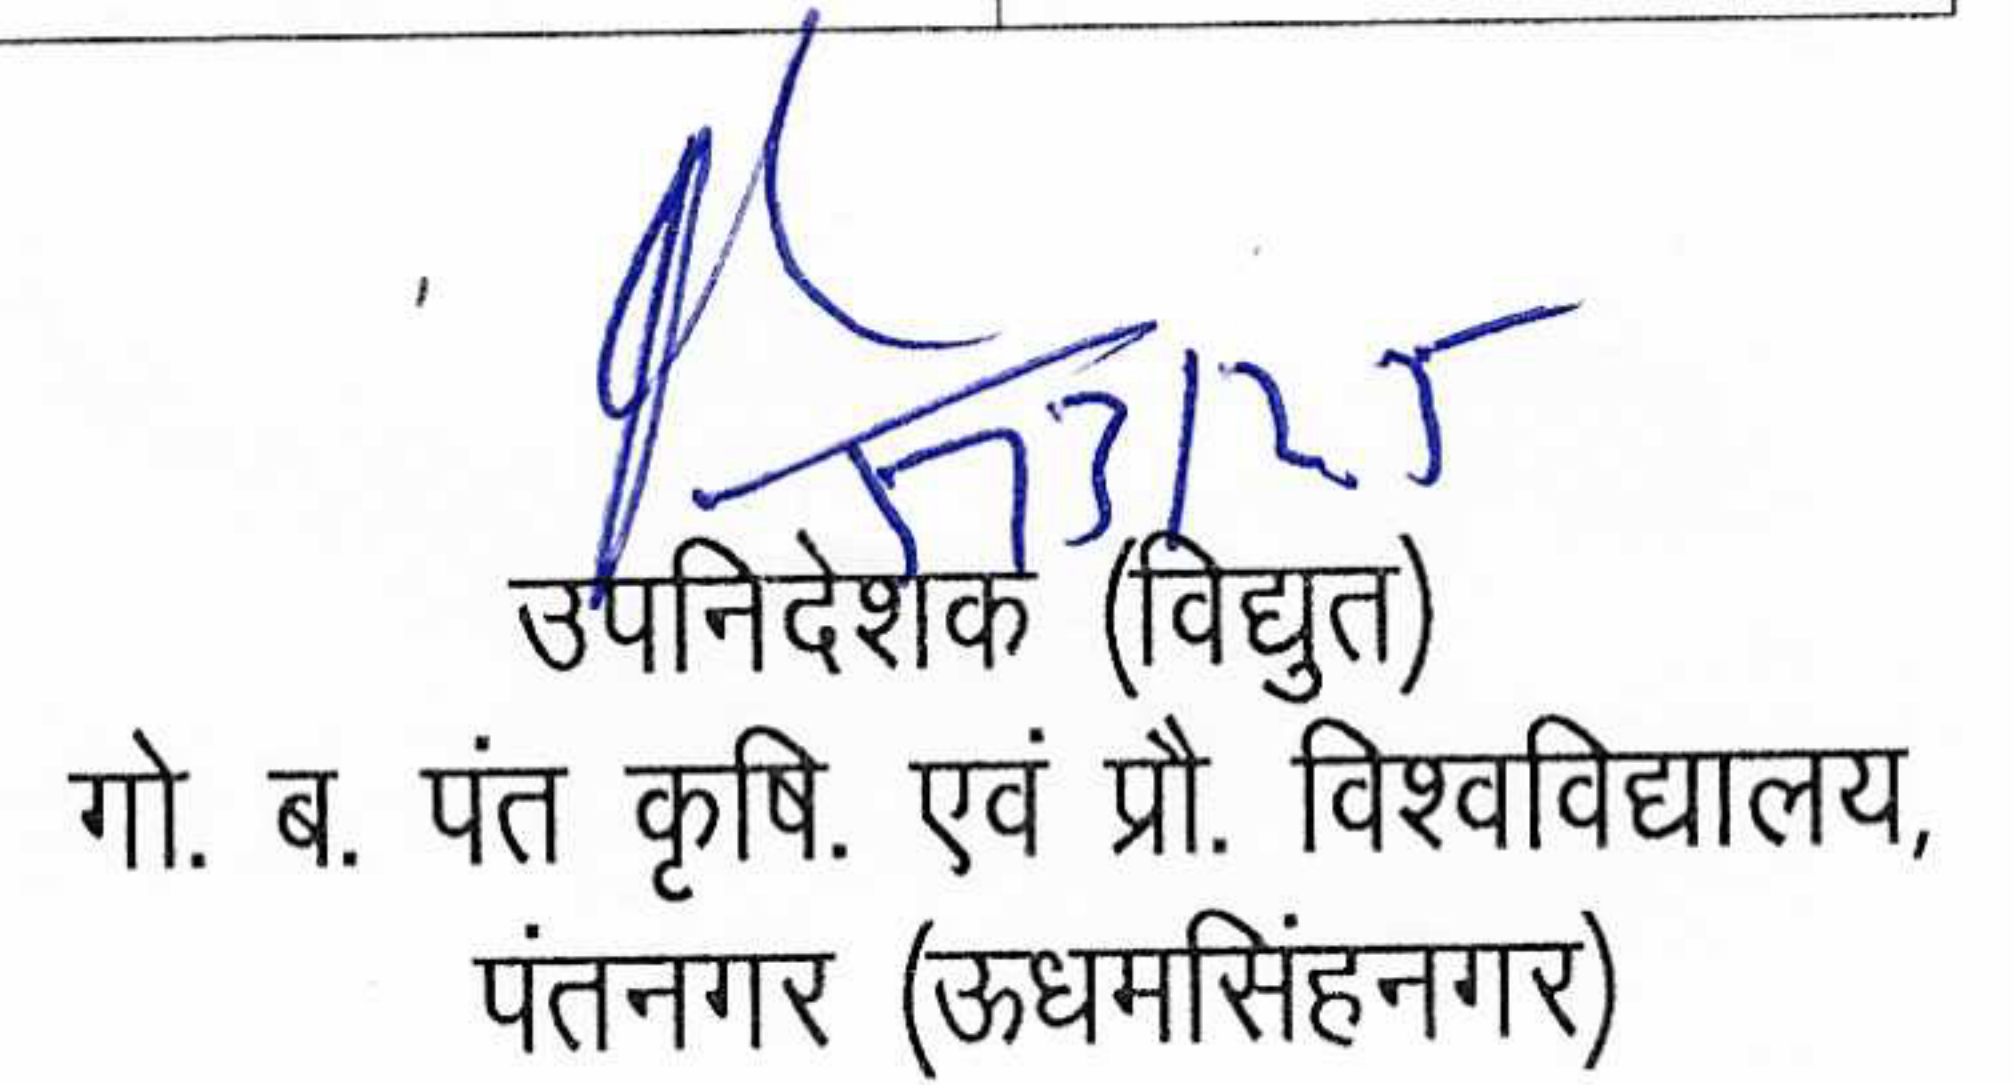 उपनिदेशक (विद्युत)
गो. ब. पंत कृषि. एवं प्रौ. विश्वविद्यालय,
पंतनगर (ऊधमसिंहनगर)